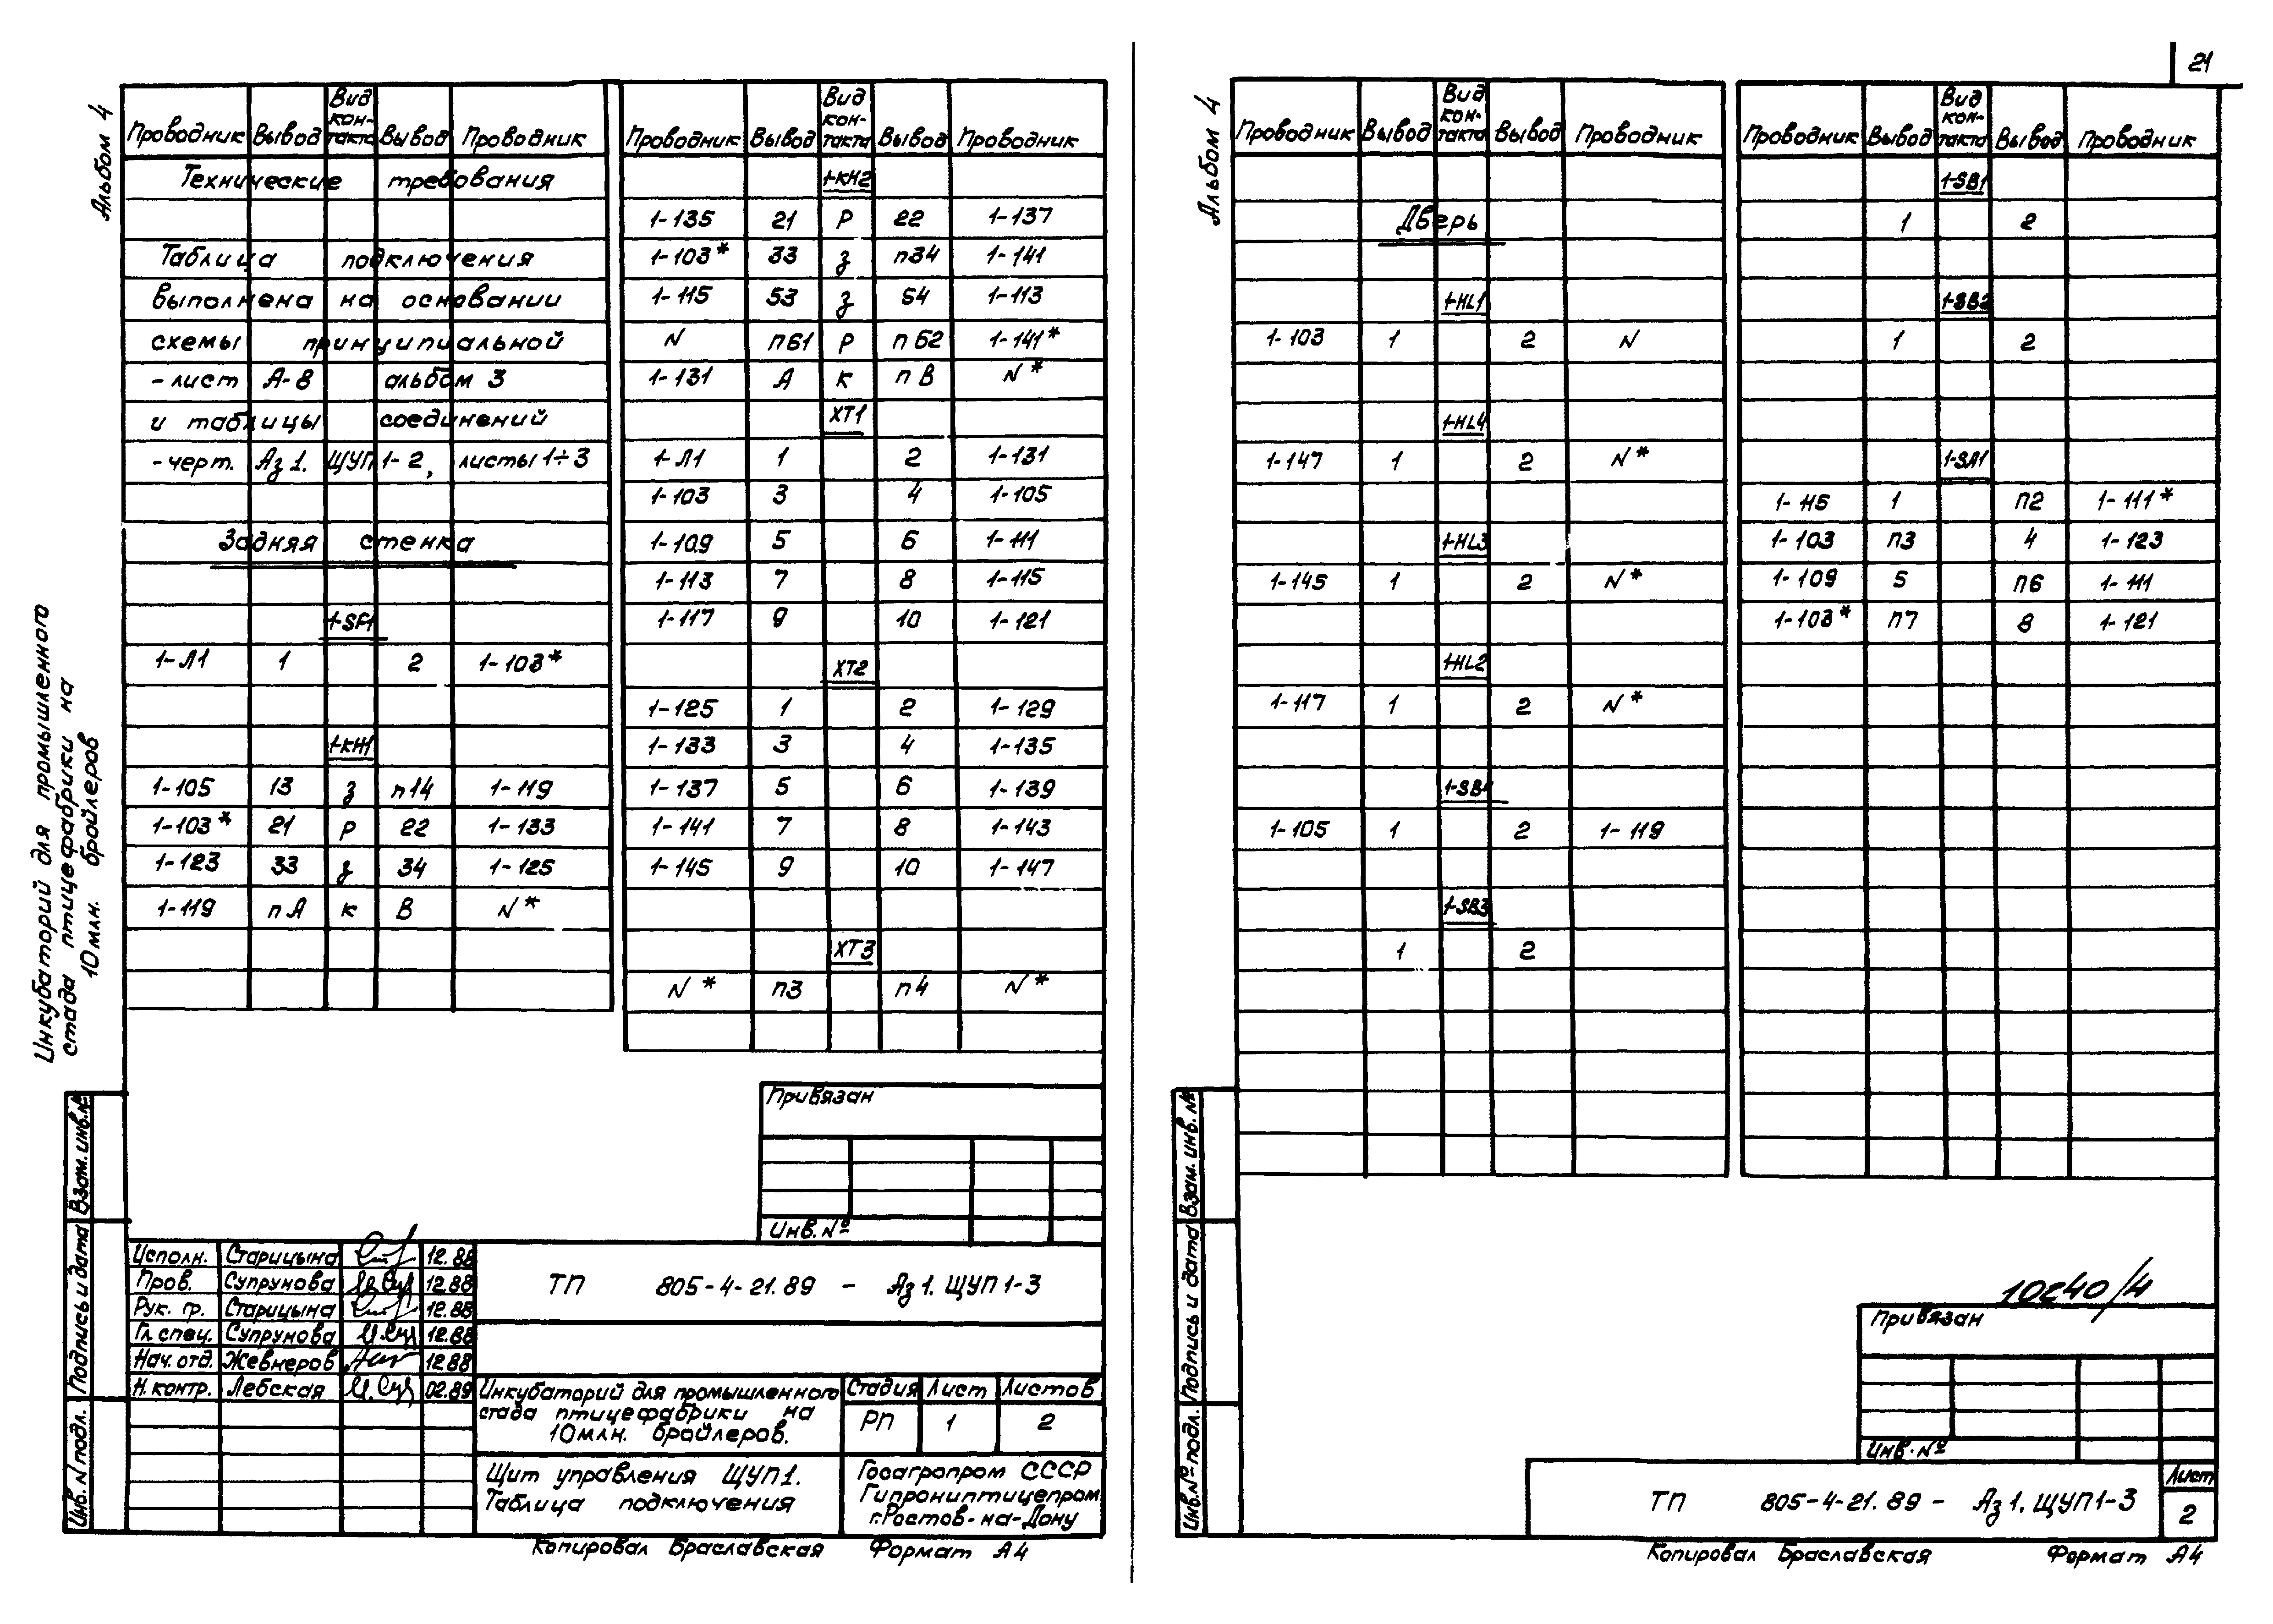 21
Альбом 4
Инкубаторий для промышленного
стада птицефабрики на
10 млн. бройлеров
Проводник Вывод Вид кон-такта Вывод Проводник
Технические требования
Таблица подключения
выполнена на основании
схемы принципиальной
- лист А-8 альбом 3
и таблицы соединений
- черт. Аз 1. ЩУП 1-2, листы 1÷3
Задняя стенка
1-SF1
1-Л1 1 2 1-103*
1-КН1
1-105 13 з п14 1-119
1-103* 21 р 22 1-133
1-123 33 з 34 1-125
1-119 пА к В N*
Проводник Вывод Вид кон-такта Вывод Проводник
1-КН2
1-135 21 р 22 1-137
1-103* 33 з п34 1-141
1-115 53 з 54 1-113
N п61 р п62 1-141*
1-131 А к пВ N*
ХТ1
1-Л1 1 2 1-131
1-103 3 4 1-105
1-109 5 6 1-111
1-113 7 8 1-115
1-117 9 10 1-121
ХТ2
1-125 1 2 1-129
1-133 3 4 1-135
1-137 5 6 1-139
1-141 7 8 1-143
1-145 9 10 1-147
ХТ3
N* п3 п4 N*
Привязан
Инв. №
Взам. инв. №
Подпись и дата
Инв. N подл.
Исполн. Старицына 12.88
Пров. Супрунова 12.88
Рук. гр. Старицына 12.88
Гл. спец. Супрунова 12.88
Нач. отд. Жевнеров 12.88
Н. контр. Лебская 02.89
ТП 805-4-21.89 - Аз 1. ЩУП 1-3
Инкубаторий для промышленного
стада птицефабрики на
10 млн. бройлеров.
Стадия Лист Листов
РП 1 2
Щит управления ЩУП1.
Таблица подключения
Госагропром СССР
Гипрониптицепром
г. Ростов-на-Дону
Копировал Браславская Формат А4
Альбом 4
Проводник Вывод Вид кон-такта Вывод Проводник
Дверь
1-HL1
1-103 1 2 N
1-HL4
1-147 1 2 N*
1-HL3
1-145 1 2 N*
1-HL2
1-117 1 2 N*
1-SB4
1-105 1 2 1-119
1-SB3
1 2
Проводник Вывод Вид кон-такта Вывод Проводник
1-SB1
1 2
1-SB2
1 2
1-SA1
1-115 1 п2 1-111*
1-103 п3 4 1-123
1-109 5 п6 1-111
1-103* п7 8 1-121
10240/4
Привязан
Инв. №
Взам. инв. №
Подпись и дата
Инв. № подл.
ТП 805-4-21.89 - Аз 1. ЩУП 1-3
Лист
2
Копировал Браславская Формат А4